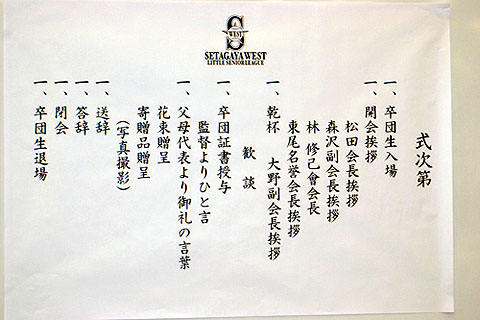 WEST
SETAGAYA WEST
LITTLE SENIOR LEAGUE
式次第
一、卒団生入場
一、開会挨拶
松田会長挨拶
森沢副会長挨拶
林 修己會会長
東尾名誉会長挨拶
一、乾杯 大野副会長挨拶
歓談
一、卒団証書授与
監督よりひと言
一、父母代表より御礼の言葉
花束贈呈
寄贈品贈呈
(写真撮影)
一、送辞
一、答辞
一、閉会
一、卒団生退場